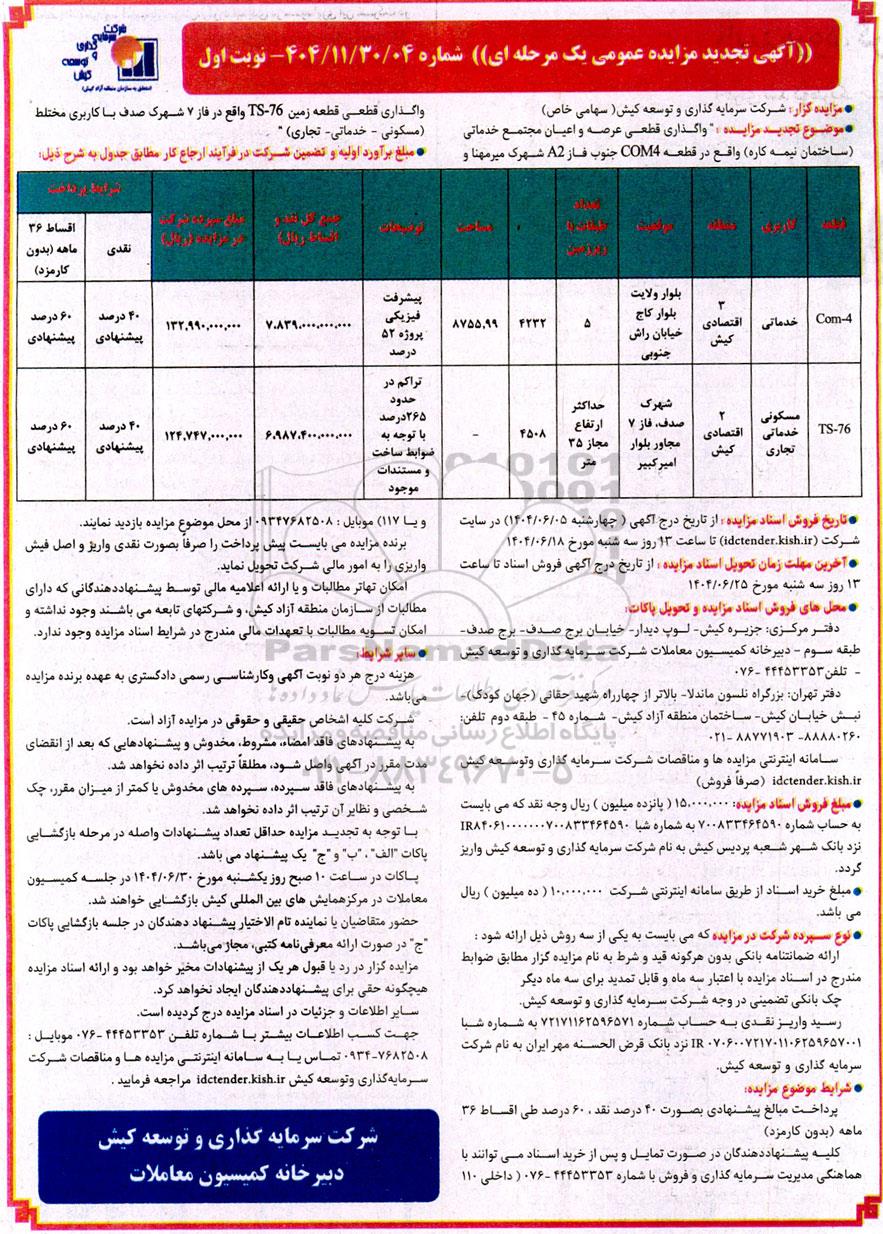 ((آگهی تجدید مزایده عمومی یک مرحله ای)) شماره ۴۰۴/۱۱/۳۰/۰۴- نوبت اول
شرکت سرمایه گذاری و توسعه کیش
(متعلق به سازمان منطقه آزاد کیش)
مزایده گزار: شرکت سرمایه گذاری و توسعه کیش( سهامی خاص)
موضوع تجدید مزایده : " واگذاری قطعی عرصه و اعیان مجتمع خدماتی
(ساختمان نیمه کاره) واقع در قطعه COM4 جنوب فاز A2 شهرک میرمهنا و
واگذاری قطعی قطعه زمین TS-76 واقع در فاز ۷ شهرک صدف با کاربری مختلط
(مسکونی - خدماتی- تجاری) "
مبلغ برآورد اولیه و تضمین شرکت در فرآیند ارجاع کار مطابق جدول به شرح ذیل:
قطعه | کاربری | منطقه | موقعیت | تعداد طبقات با زیرزمین | مساحت | توضیحات | جمع کل نقد و اقساط ریال) | مبلغ سپرده شرکت در مزایده (ریال) | شرایط پرداخت
نقدی | اقساط ۳۶ ماهه (بدون کارمزد)
Com-4 | خدماتی | ۳ اقتصادی کیش | بلوار ولایت بلوار کاج خیابان راش جنوبی | ۵ | ۴۲۳۲ | ۸۷۵۵.۹۹ | پیشرفت فیزیکی پروژه ۵۲ درصد | ۷.۸۳۹.۰۰۰.۰۰۰.۰۰۰ | ۱۳۲.۹۹۰.۰۰۰.۰۰۰ | ۴۰ درصد پیشنهادی | ۶۰ درصد پیشنهادی
TS-76 | مسکونی خدماتی تجاری | ۲ اقتصادی کیش | شهرک صدف، فاز ۷ مجاور بلوار امیرکبیر | حداکثر ارتفاع مجاز ۳۵ متر | ۴۵۰۸ | - | تراکم در حدود ۲۶۵درصد با توجه به ضوابط ساخت و مستندات موجود | ۶.۹۸۷.۴۰۰.۰۰۰.۰۰۰ | ۱۲۴.۷۴۷.۰۰۰.۰۰۰ | ۴۰ درصد پیشنهادی | ۶۰ درصد پیشنهادی
تاریخ فروش اسناد مزایده : از تاریخ درج آگهی ( چهارشنبه ۱۴۰۴/۰۶/۰۵) در سایت
شرکت (idctender.kish.ir) تا ساعت ۱۳ روز سه شنبه مورخ ۱۴۰۴/۰۶/۱۸
آخرین مهلت زمان تحویل اسناد مزایده : از تاریخ درج آگهی فروش اسناد تا ساعت
۱۳ روز سه شنبه مورخ ۱۴۰۴/۰۶/۲۵
محل های فروش اسناد مزایده و تحویل پاکات:
دفتر مرکزی: جزیره کیش- لوپ دیدار- خیابان برج صدف- برج صدف-
طبقه سوم - دبیرخانه کمیسیون معاملات شرکت سرمایه گذاری و توسعه کیش
- تلفن۴۴۴۵۳۳۵۳ -۰۷۶
دفتر تهران: بزرگراه نلسون ماندلا- بالاتر از چهارراه شهید حقانی (جهان کودک)-
نبش خیابان کیش- ساختمان منطقه آزاد کیش- شماره ۴۵ - طبقه دوم تلفن:
۸۸۸۸۰۲۶۰- ۸۸۷۷۱۹۰۳ -۰۲۱
سامانه اینترنتی مزایده ها و مناقصات شرکت سرمایه گذاری وتوسعه کیش
idctender.kish.ir (صرفاً فروش)
مبلغ فروش اسناد مزایده: ۱۵.۰۰۰.۰۰۰ ( پانزده میلیون ) ریال وجه نقد که می بایست
به حساب شماره ۷۰۰۸۳۳۴۶۴۵۹۰ به شماره شبا IR۸۴۰۶۱۰۰۰۰۰۰۰۷۰۰۸۳۳۴۶۴۵۹۰
نزد بانک شهر شعبه پردیس کیش به نام شرکت سرمایه گذاری و توسعه کیش واریز
گردد.
مبلغ خرید اسناد از طریق سامانه اینترنتی شرکت ۱۰.۰۰۰.۰۰۰ ( ده میلیون ) ریال
می باشد.
نوع سپرده شرکت در مزایده که می بایست به یکی از سه روش ذیل ارائه شود :
ارائه ضمانتنامه بانکی بدون هرگونه قید و شرط به نام مزایده گزار مطابق ضوابط
مندرج در اسناد مزایده با اعتبار سه ماه و قابل تمدید برای سه ماه دیگر
چک بانکی تضمینی در وجه شرکت سرمایه گذاری و توسعه کیش.
رسید واریز نقدی به حساب شماره ۷۲۱۷۱۱۶۲۵۹۶۵۷۱ به شماره شبا
IR ۰۷۰۶۰۰۷۲۱۷۰۱۱۰۶۲۵۹۶۵۷۰۰۱ نزد بانک قرض الحسنه مهر ایران به نام شرکت
سرمایه گذاری و توسعه کیش.
شرایط موضوع مزایده:
پرداخت مبالغ پیشنهادی بصورت ۴۰ درصد نقد ، ۶۰ درصد طی اقساط ۳۶
ماهه (بدون کارمزد)
کلیه پیشنهاددهندگان در صورت تمایل و پس از خرید اسناد می توانند با
هماهنگی مدیریت سرمایه گذاری و فروش با شماره ۴۴۴۵۳۳۵۳ -۰۷۶ ( داخلی ۱۱۰
و یا ۱۱۷) موبایل : ۰۹۳۴۷۶۸۲۵۰۸ از محل موضوع مزایده بازدید نمایند.
برنده مزایده می بایست پیش پرداخت را صرفاً بصورت نقدی واریز و اصل فیش
واریزی را به امور مالی شرکت تحویل نماید.
امکان تهاتر مطالبات و یا ارائه اعلامیه مالی توسط پیشنهاددهندگانی که دارای
مطالبات از سازمان منطقه آزاد کیش، و شرکتهای تابعه می باشند وجود نداشته و
امکان تسویه مطالبات با تعهدات مالی مندرج در شرایط اسناد مزایده وجود ندارد.
سایر شرایط:
هزینه درج هر دو نوبت آگهی وکارشناسی رسمی دادگستری به عهده برنده مزایده
می‌باشد.
شرکت کلیه اشخاص حقیقی و حقوقی در مزایده آزاد است.
به پیشنهادهای فاقد امضاء، مشروط، مخدوش و پیشنهادهایی که بعد از انقضای
مدت مقرر در آگهی واصل شود، مطلقاً ترتیب اثر داده نخواهد شد.
به پیشنهادهای فاقد سپرده، سپرده های مخدوش یا کمتر از میزان مقرر، چک
شخصی و نظایر آن ترتیب اثر داده نخواهد شد.
با توجه به تجدید مزایده حداقل تعداد پیشنهادات واصله در مرحله بازگشایی
پاکات "الف" ، "ب" و "ج" یک پیشنهاد می باشد.
پاکات در ساعت ۱۰ صبح روز یکشنبه مورخ ۱۴۰۴/۰۶/۳۰ در جلسه کمیسیون
معاملات در مرکزهمایش های بین المللی کیش بازگشایی خواهند شد.
حضور متقاضیان یا نماینده تام الاختیار پیشنهاد دهندگان در جلسه بازگشایی پاکات
"ج" در صورت ارائه معرفی‌نامه کتبی، مجاز می‌باشد.
مزایده گزار در رد یا قبول هر یک از پیشنهادات مخیّر خواهد بود و ارائه اسناد مزایده
هیچگونه حقی برای پیشنهاددهندگان ایجاد نخواهد کرد.
سایر اطلاعات و جزئیات در اسناد مزایده درج گردیده است.
جهت کسب اطلاعات بیشتر با شماره تلفن ۴۴۴۵۳۳۵۳ -۰۷۶ موبایل :
۰۹۳۴-۷۶۸۲۵۰۸ تماس یا به سامانه اینترنتی مزایده ها و مناقصات شرکت
سرمایه‌گذاری وتوسعه کیش idctender.kish.ir مراجعه فرمایید .
شرکت سرمایه گذاری و توسعه کیش
دبیرخانه کمیسیون معاملات
پایگاه اطلاع رسانی مناقصه و مزایده
۰۲۱-۸۸۳۴۹۶۷۰-۵